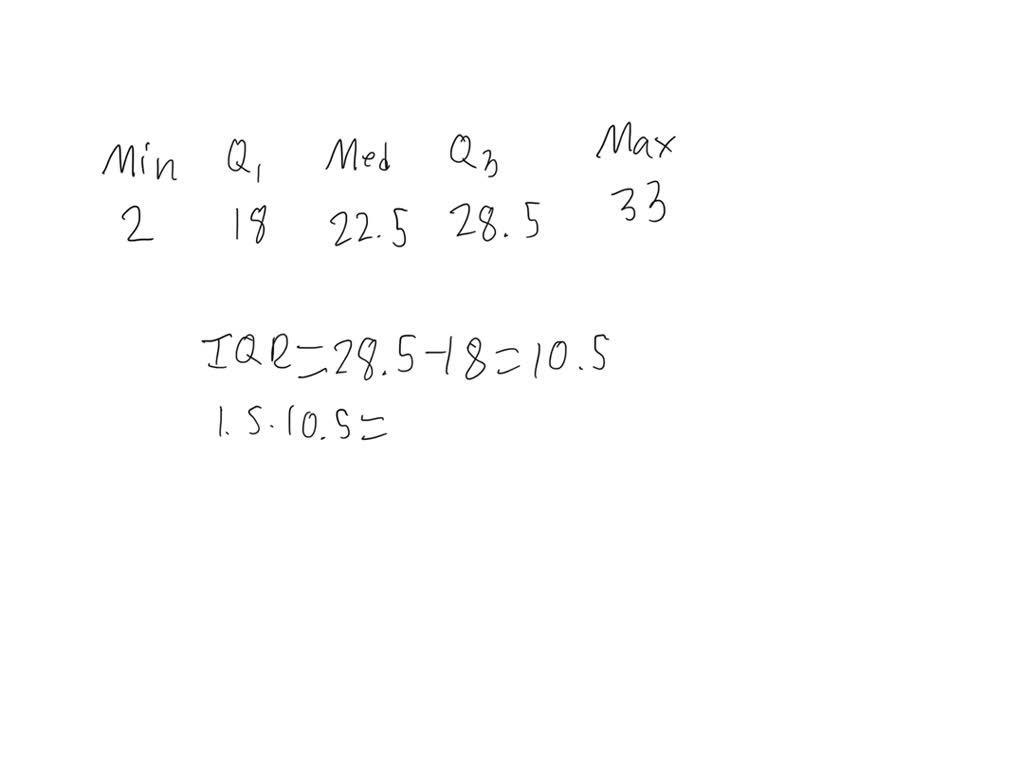 Min Q₁ Med Q₃ Max
2 18 22.5 28.5 33
IQR=28.5-18=10.5
1.5·10.5=